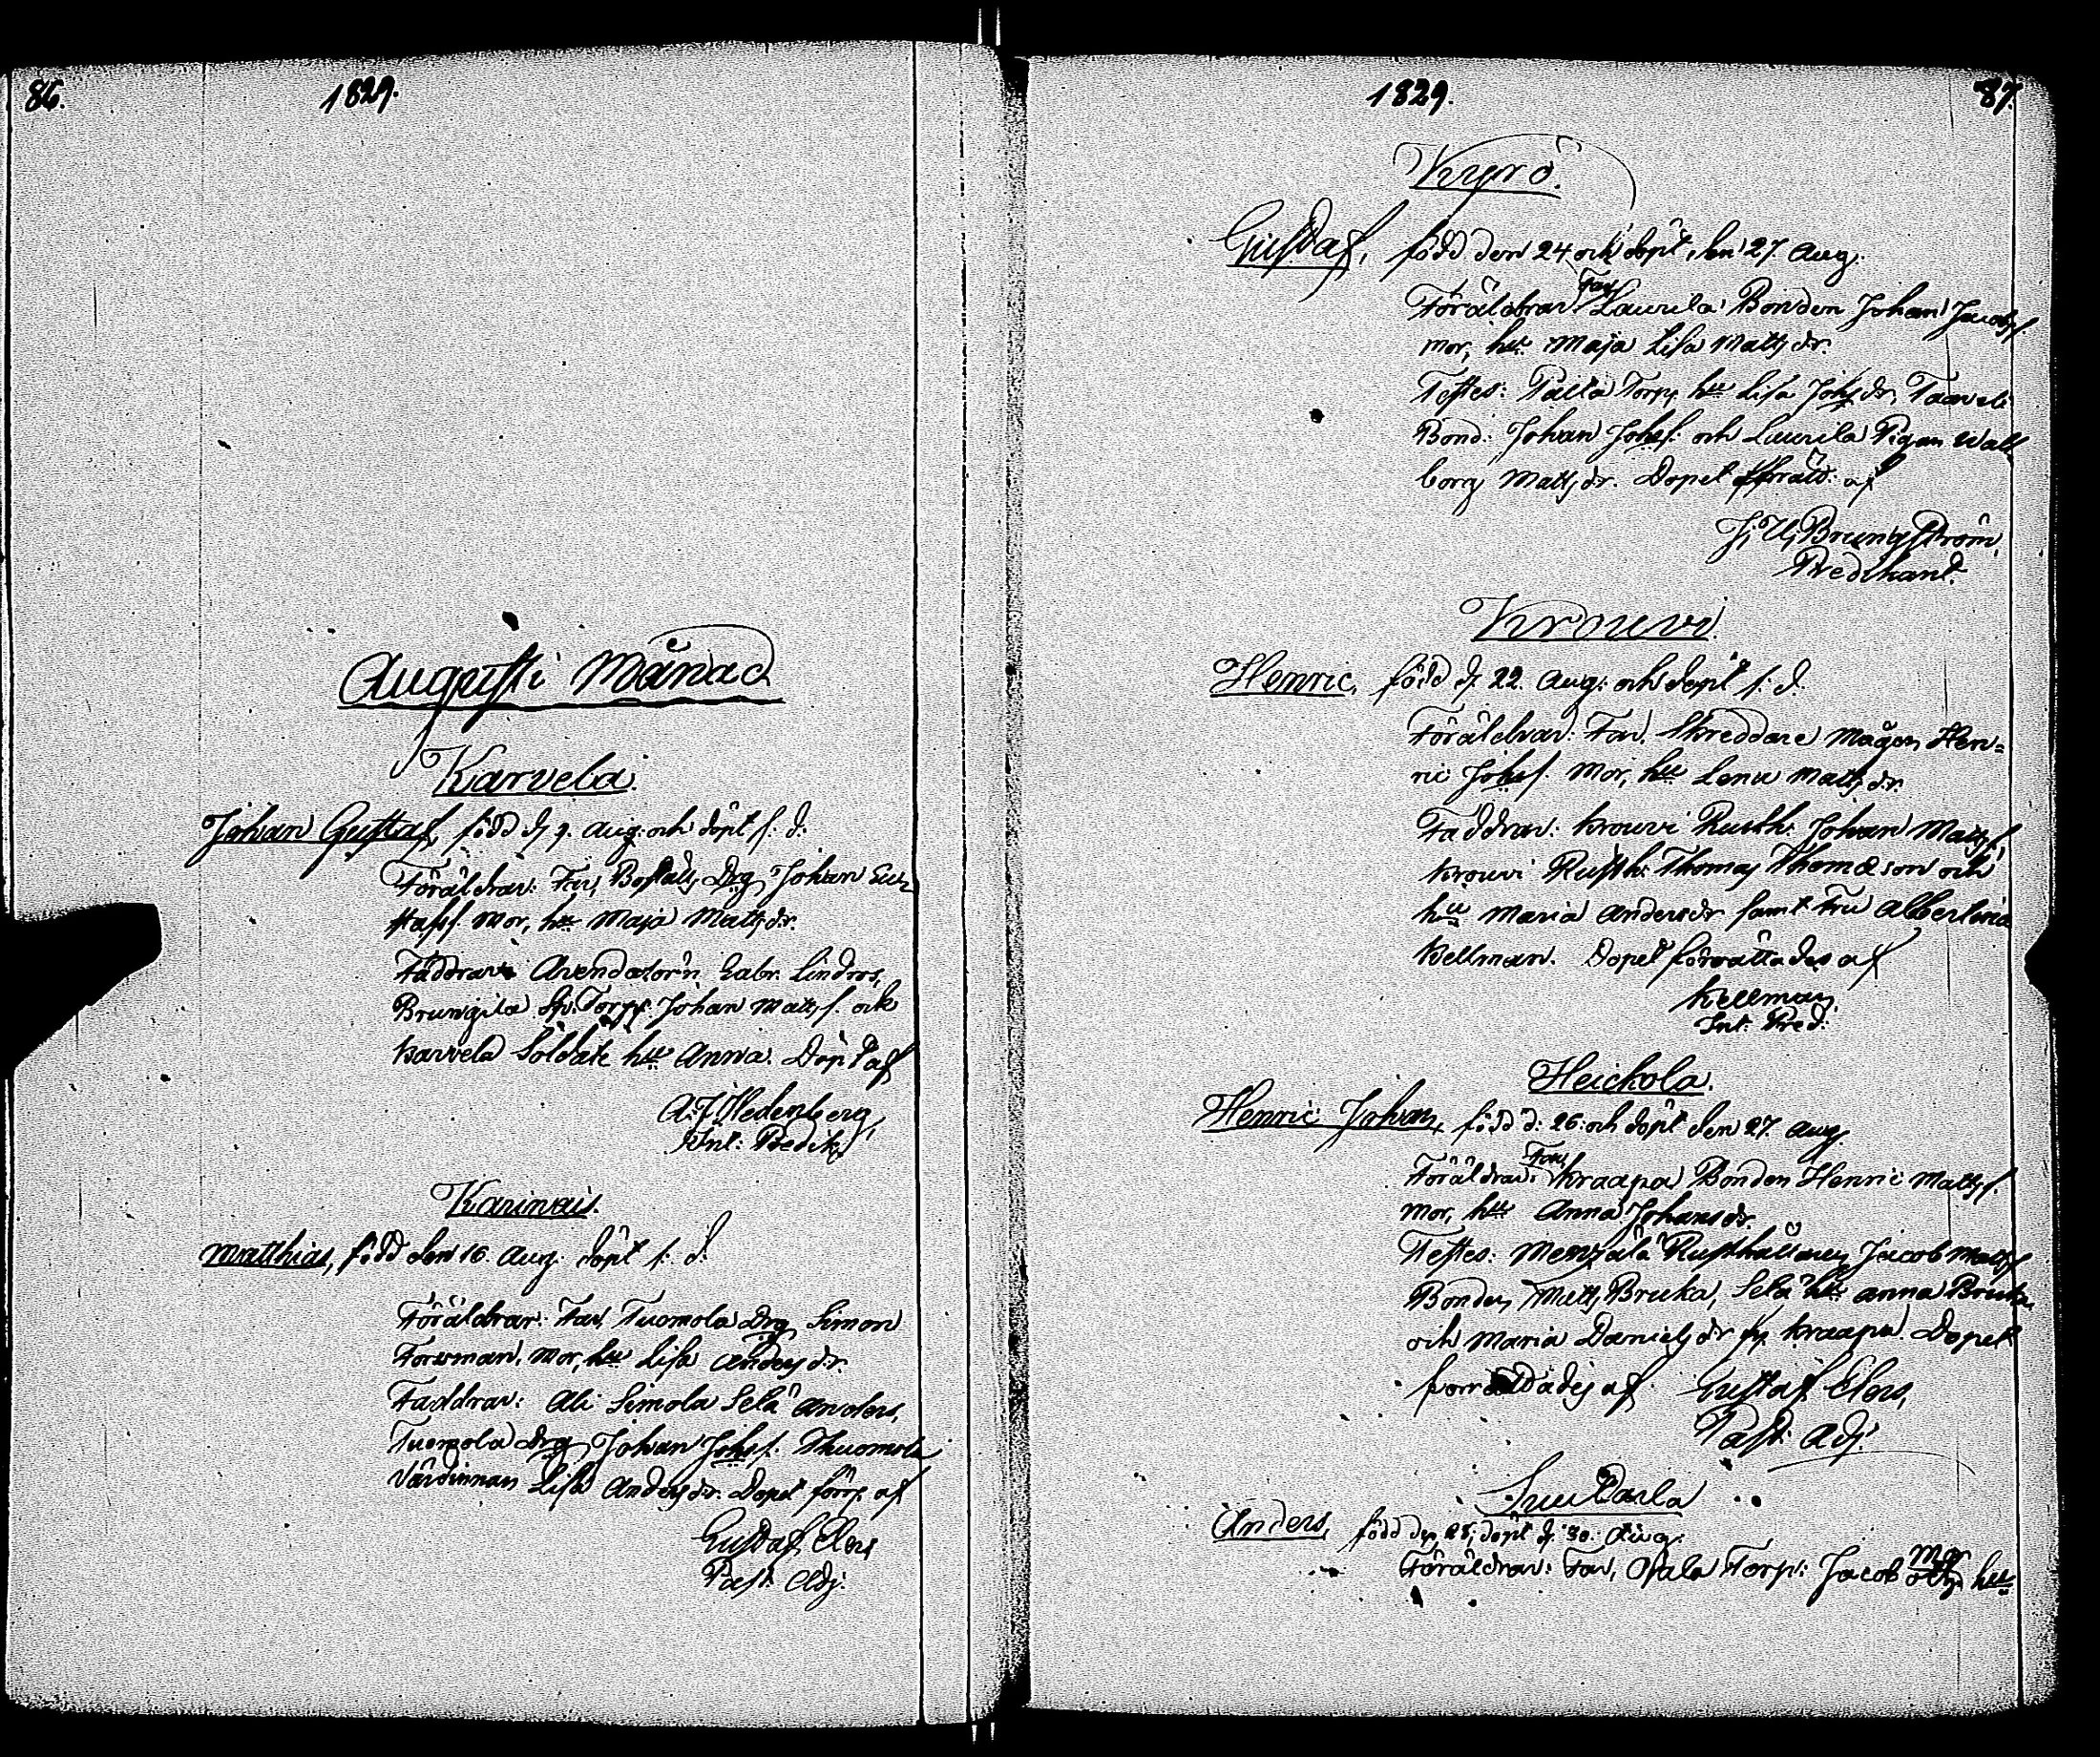 86.
1829.
Augusti Månad
Karvela.
Johan Gustaf, född d. 9. Aug: och döpt s: d:
Föräldrar: Far, Boställs Drg Johan Gu-
stafss. Mor, hu Maja Mattsdr.
Faddrar: Arendatorn Gabr. Lindros,
Brunnila Torp: Johan Matss. och
Karvela Soldate hu Anna. Döpt af
A: J: Hedenberg,
Int: Predik:
Karinais.
Matthias, född den 16. Aug. döpt s: d:
Föräldrar: Far, Tuomola Drg Simon
Forsman, Mor, hu Lisa Andersdr.
Faddrar: Ali Simola Anders,
Tuomola Drg Johan Johss. Thuomola
Värdinnan Lisa Andersdr. Dopet förr: af
Gustaf Elers
Past: Adj:
1829.
87.
Kyrö.
Gustaf, född den 24 och döpt den 27. Aug.
Föräldrar: Far Laurila Bonden Johan Jacobss.
mor, hu Maja Lisa Mattsdr.
Testes: Torp: hu Lisa Johsdr,
Bond: Johan Johss: och Laurila Pigan Wall-
borg Mattsdr. Dopet förrätt: af
Brunström,
Predikant.
Krouvi.
Henric, född d. 22. Aug: och döpt s: d.
Föräldrar: Far, Skreddare Mågen Hen=
ric Johss. Mor, hu Lena Mattsdr.
Faddrar: Krouvi Rusth: Johan Matss,
Krouvi Rusth: Thomas Thomæson och
hu Maria Andersdr samt Fru Albertina
Kellman. Dopet förrättades af
Kellman
Int: Pred:
Heickola.
Henric Johan, född d: 26: och döpt den 27. Aug
Föräldrar: Far, Kraapa Bonden Henric Matss.
Mor, hu Anna Johansdr.
Testes: Rusthållaren Jacob Matss
Bonden Matts Bruka, hu Anna Bruka
och Maria Danielsdr Kraapa. Dopet
förrättades af Gustaf Elers,
Past: Adj:
Anders, född den 28, döpt d: 30. Aug:
Föräldrar: Far, Ojala Torp: Jacob Mor hu